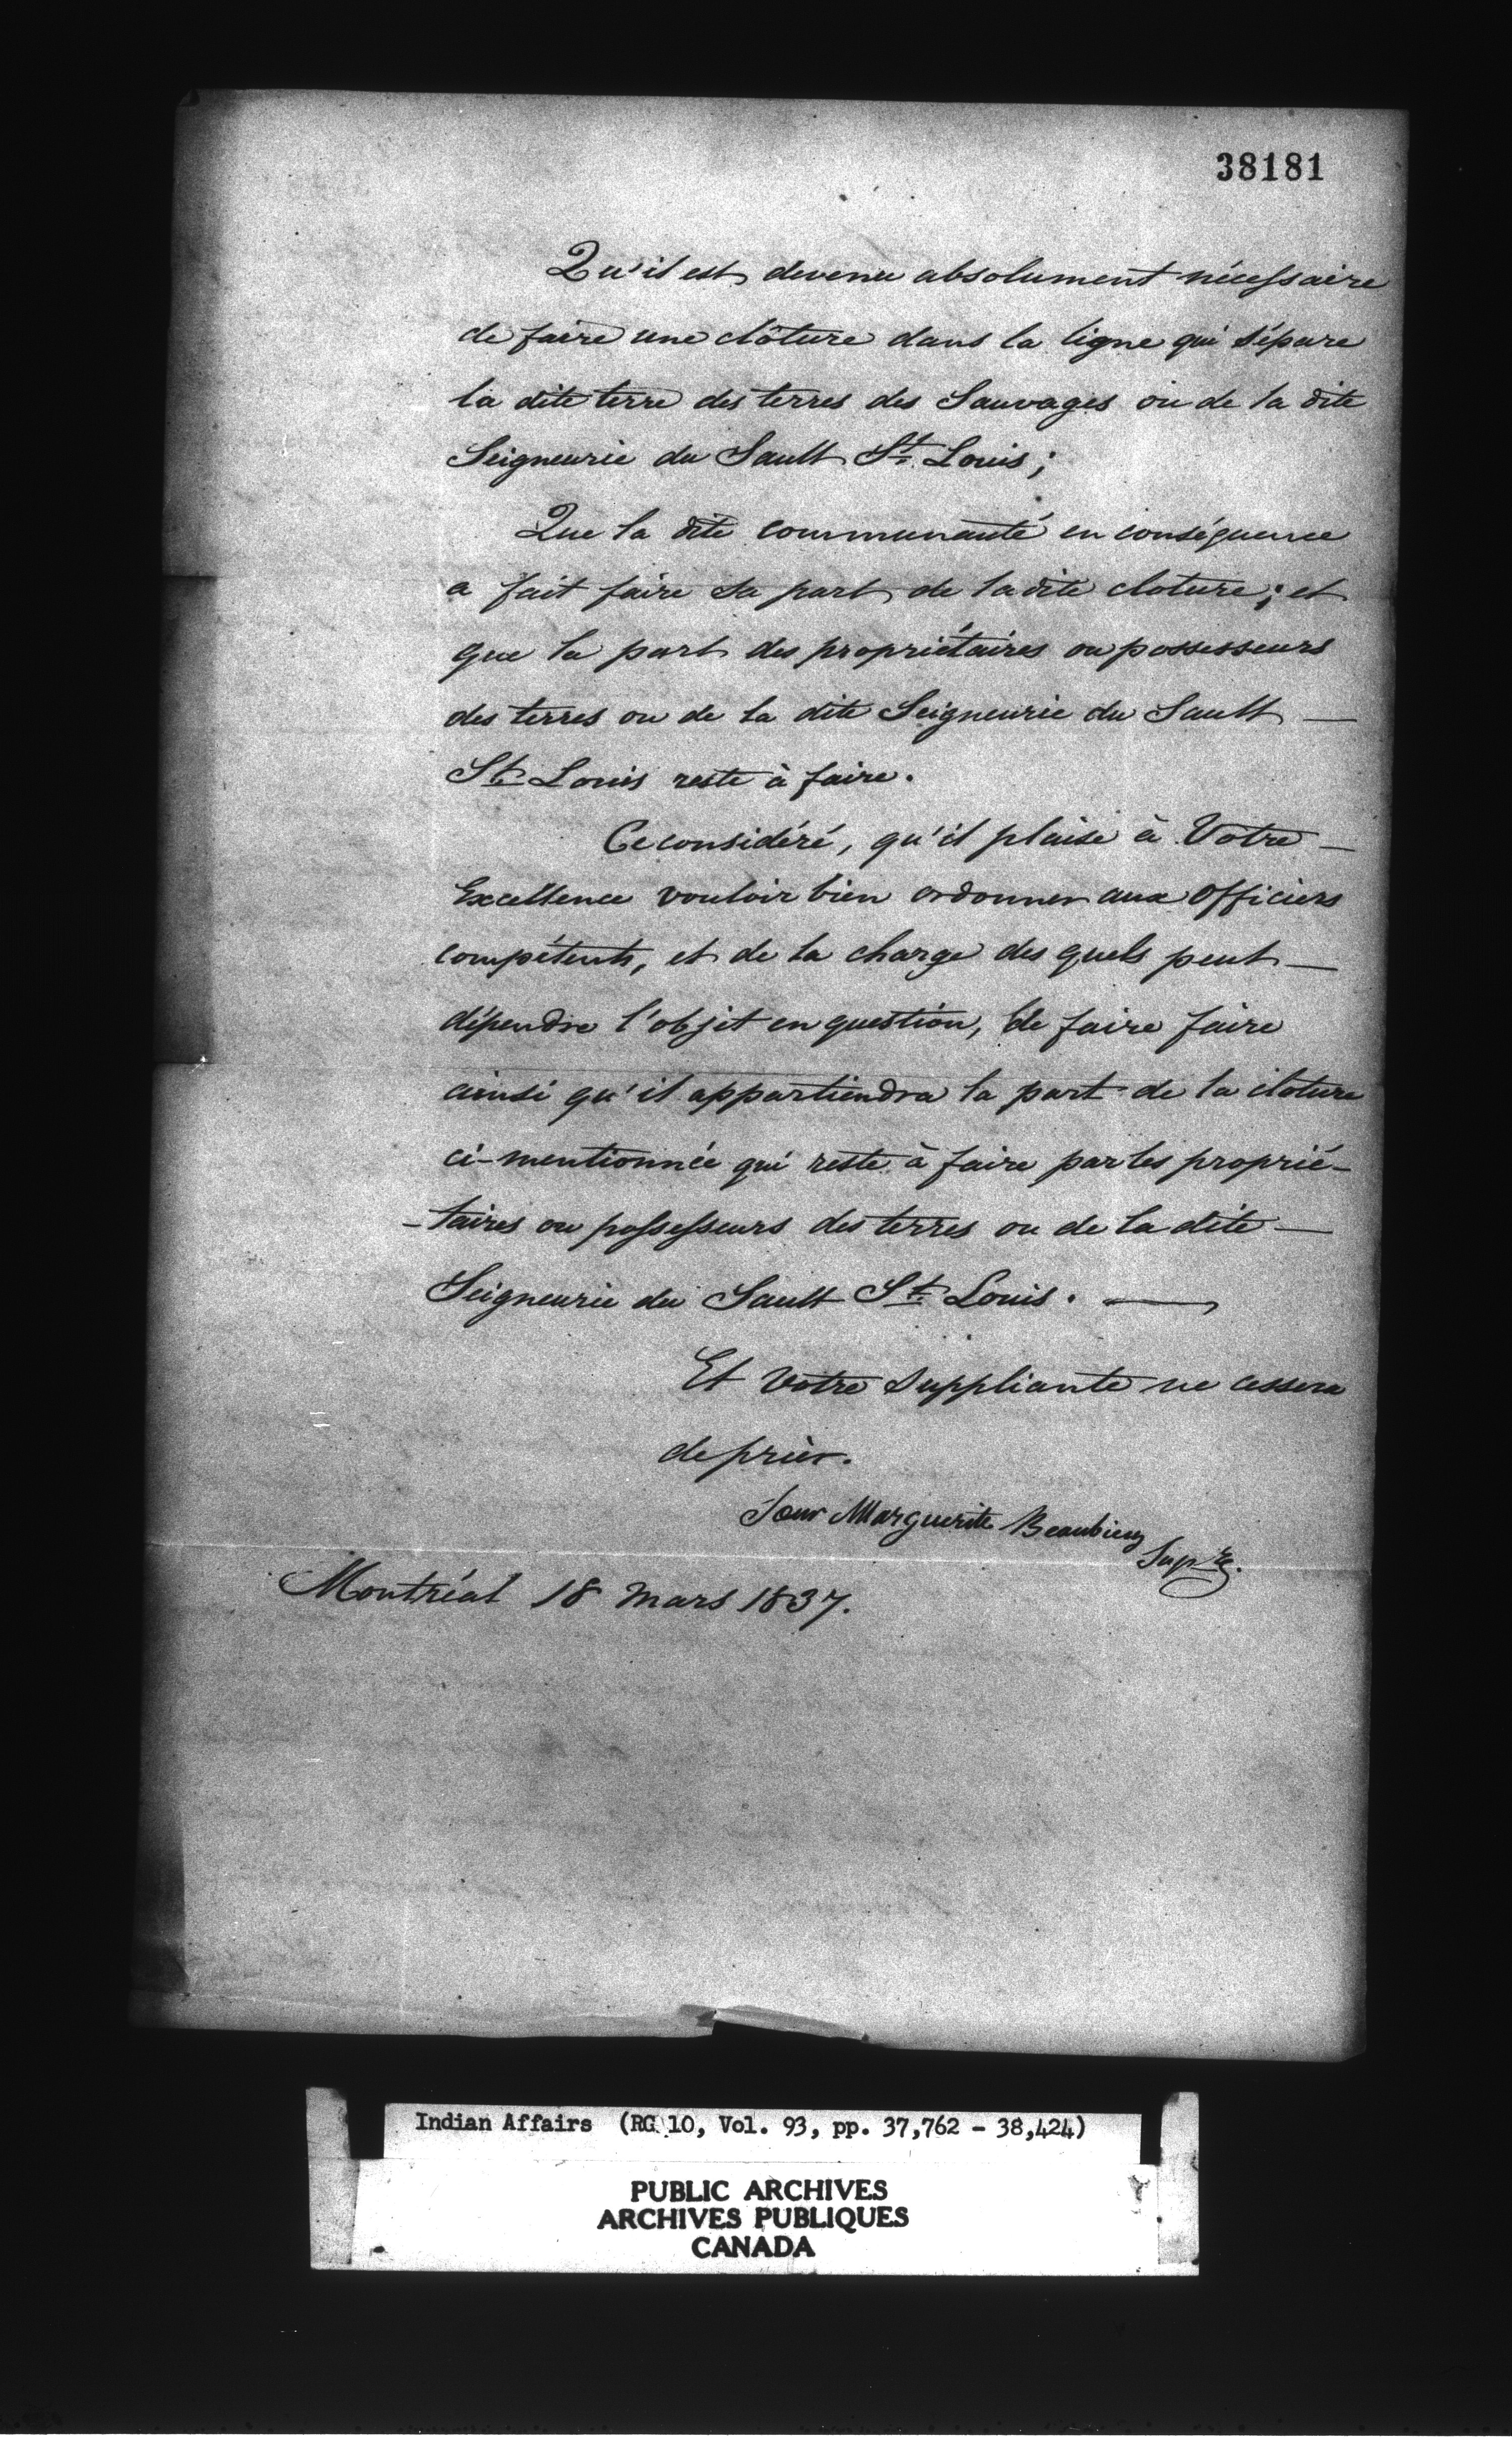 38181
Qu'il est devenu absolument nécessaire
de faire une clôture dans la ligne qui sépare
la dite terre des terres des Sauvages ou de la dite
Seigneurie du Sault St. Louis;
Que la dite communauté en conséquence
a fait faire sa part de la dite cloture; et
que la part des propriétaires ou possesseurs
des terres ou de la dite Seigneurie du Sault —
St. Louis reste à faire.
Ce considéré, qu'il plaise à Votre —
Excellence vouloir bien ordonner aux Officiers
compétents, et de la charge des quels peut —
dépendre l'objet en question, de faire faire
ainsi qu'il appartiendra la part de la cloture
ci-mentionnée qui reste à faire par les proprié-
-taires ou possesseurs des terres ou de la dite —
Seigneurie du Sault St. Louis. —
Et Votre Suppliante ne cessera
de prier.
Sœur Marguerite Beaubien
Supre.
Montréal 18 Mars 1837.
Indian Affairs (RG 10, Vol. 93, pp. 37,762 - 38,424)
PUBLIC ARCHIVES
ARCHIVES PUBLIQUES
CANADA